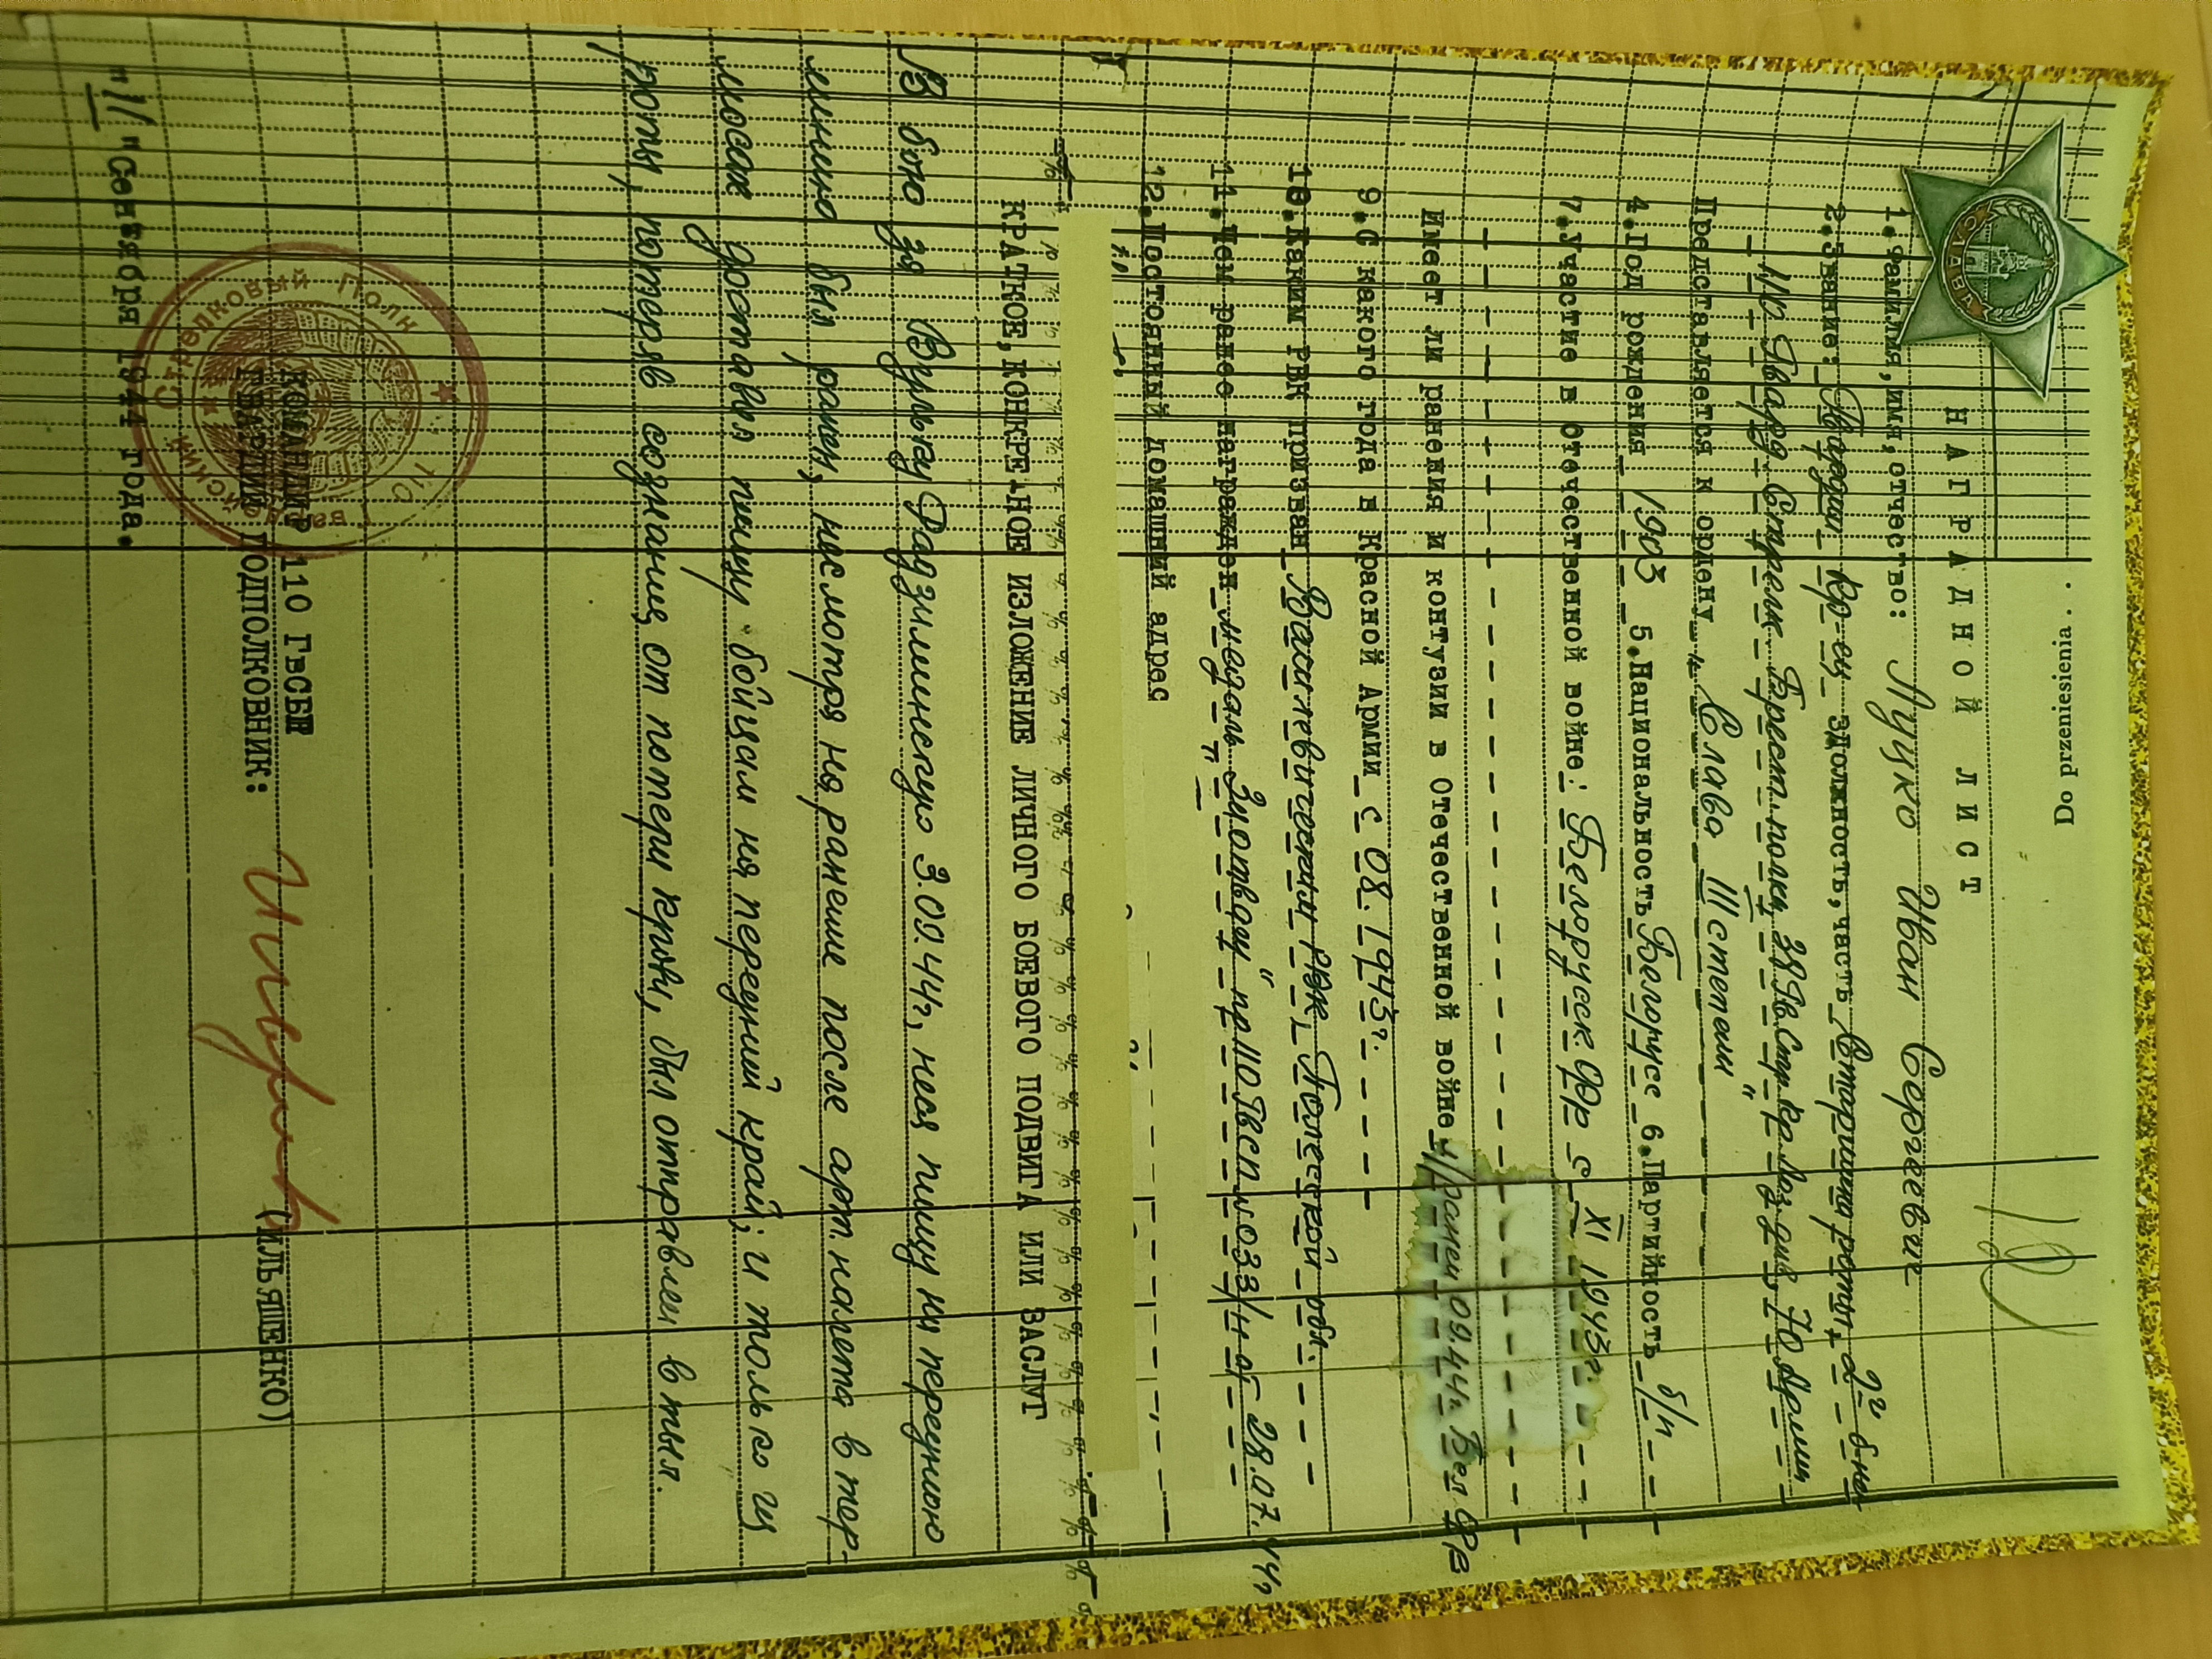 Do przeniesienia . .
СЛАВА
НАГРАДНОЙ ЛИСТ
1.Фамилия,имя,отчество: Луцко Иван Сергеевич
2.Звание: Гвардии кр-ец 3.Должность,часть Старшина роты, 2го б-на
110 Гвард. Стрелк. Брест. полка, 38 Гв. Стр. Кр. Лоз. див. 70 Армии
Представляется к ордену „Слава III степени"
4.Год рождения 1903 5.Национальность Белорусс 6.Партийность б/п
7.Участие в Отечественной войне: Белорусск. Фр с XI 1943г.
Имеет ли ранения и контузии в Отечественной войне ранен 09.44г. Бел Фр
9.С какого года в Красной Армии с 08.1943г.
10.Каким РВК призван Василевичским рвк, Полесской обл.
11.Чем ранее награжден медаль „За отвагу" пр 110 Гвсп N.033/н от 28.07.44г
12.Постоянный домашний адрес
КРАТКОЕ,КОНКРЕТНОЕ ИЗЛОЖЕНИЕ ЛИЧНОГО БОЕВОГО ПОДВИГА ИЛИ ЗАСЛУГ
В бою за Вульку Радзиминскую 3.09.44г, неся пищу на переднюю
линию был ранен, несмотря на ранение после арт. налета в тер-
мосах доставил пищу бойцам на передний край; и только из
роты, потеряв сознание от потери крови, был отправлен в тыл.
КОМАНДИР 110 ГвСБП
ГВАРДИИ ПОДПОЛКОВНИК: (ИЛЬЯШЕНКО)
110 Гвардейский Стрелковый Полк
"11" Сентября 1944 года.